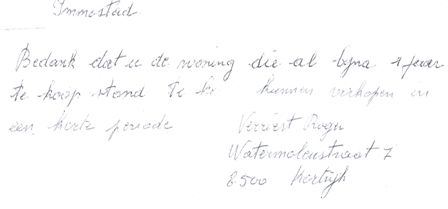 Immostad
Bedankt dat u de woning die al bijna 1 jaar
te koop stond te kunnen verkopen in
een korte periode
Verriest Roger
Watermolenstraat 7
8500 Kortrijk